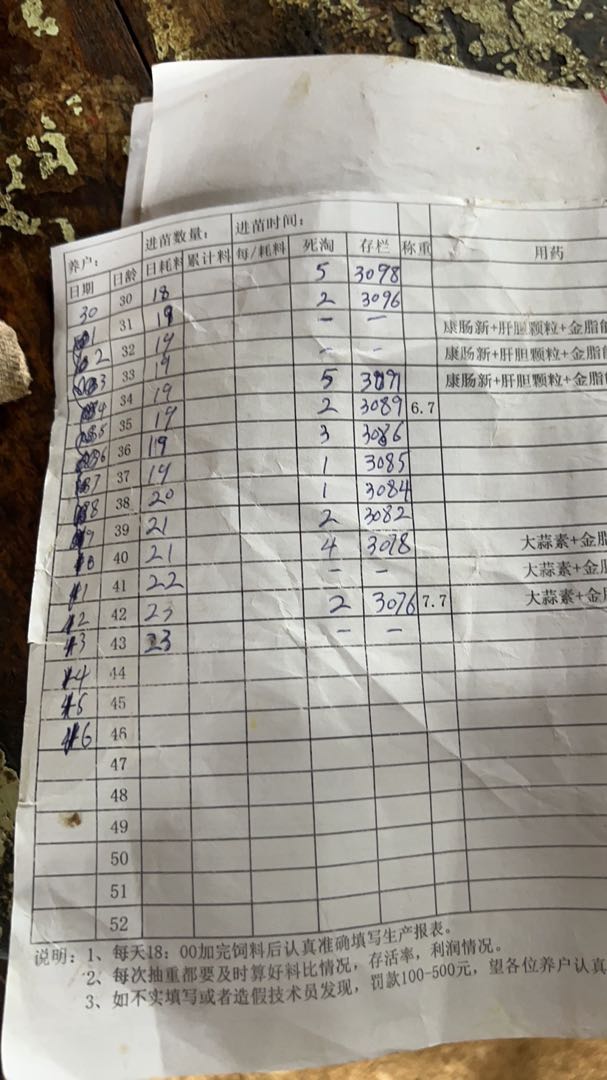 养户： 进苗数量： 进苗时间：
日期 日龄 日耗料 累计料 每/耗料 死淘 存栏 称重 用药
30 30 18 5 3098
31 19 2 3096
2 32 19 — — 康肠新+肝胆颗粒+金脂
3 33 19 — — 康肠新+肝胆颗粒+金脂
4 34 19 5 3091 康肠新+肝胆颗粒+金脂
5 35 19 2 3089 6.7
6 36 19 3 3086
7 37 19 1 3085
8 38 20 1 3084
9 39 21 2 3082
10 40 21 4 3078 大蒜素+金脂
11 41 22 — — 大蒜素+金脂
12 42 23 2 3076 7.7 大蒜素+金脂
13 43 23 — —
14 44
15 45
16 46
47
48
49
50
51
52
说明：1、每天18：00加完饲料后认真准确填写生产报表。
2、每次抽重都要及时算好料比情况，存活率，利润情况。
3、如不实填写或者造假技术员发现，罚款100-500元，望各位养户认真